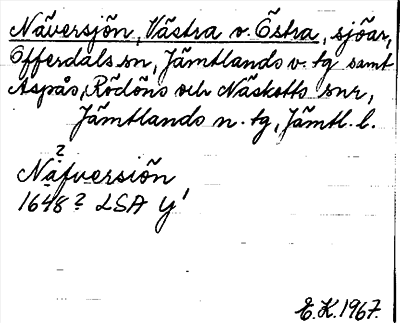 Näversjön, Västra o. Östra, sjöar,
Offerdals sn, Jämtlands v. tg samt
Aspås, Rödöns och Näskotts snr,
Jämtlands n. tg, Jämtl. l.
?
Näfversiön
1648? LSA Y'
E.K. 1967.